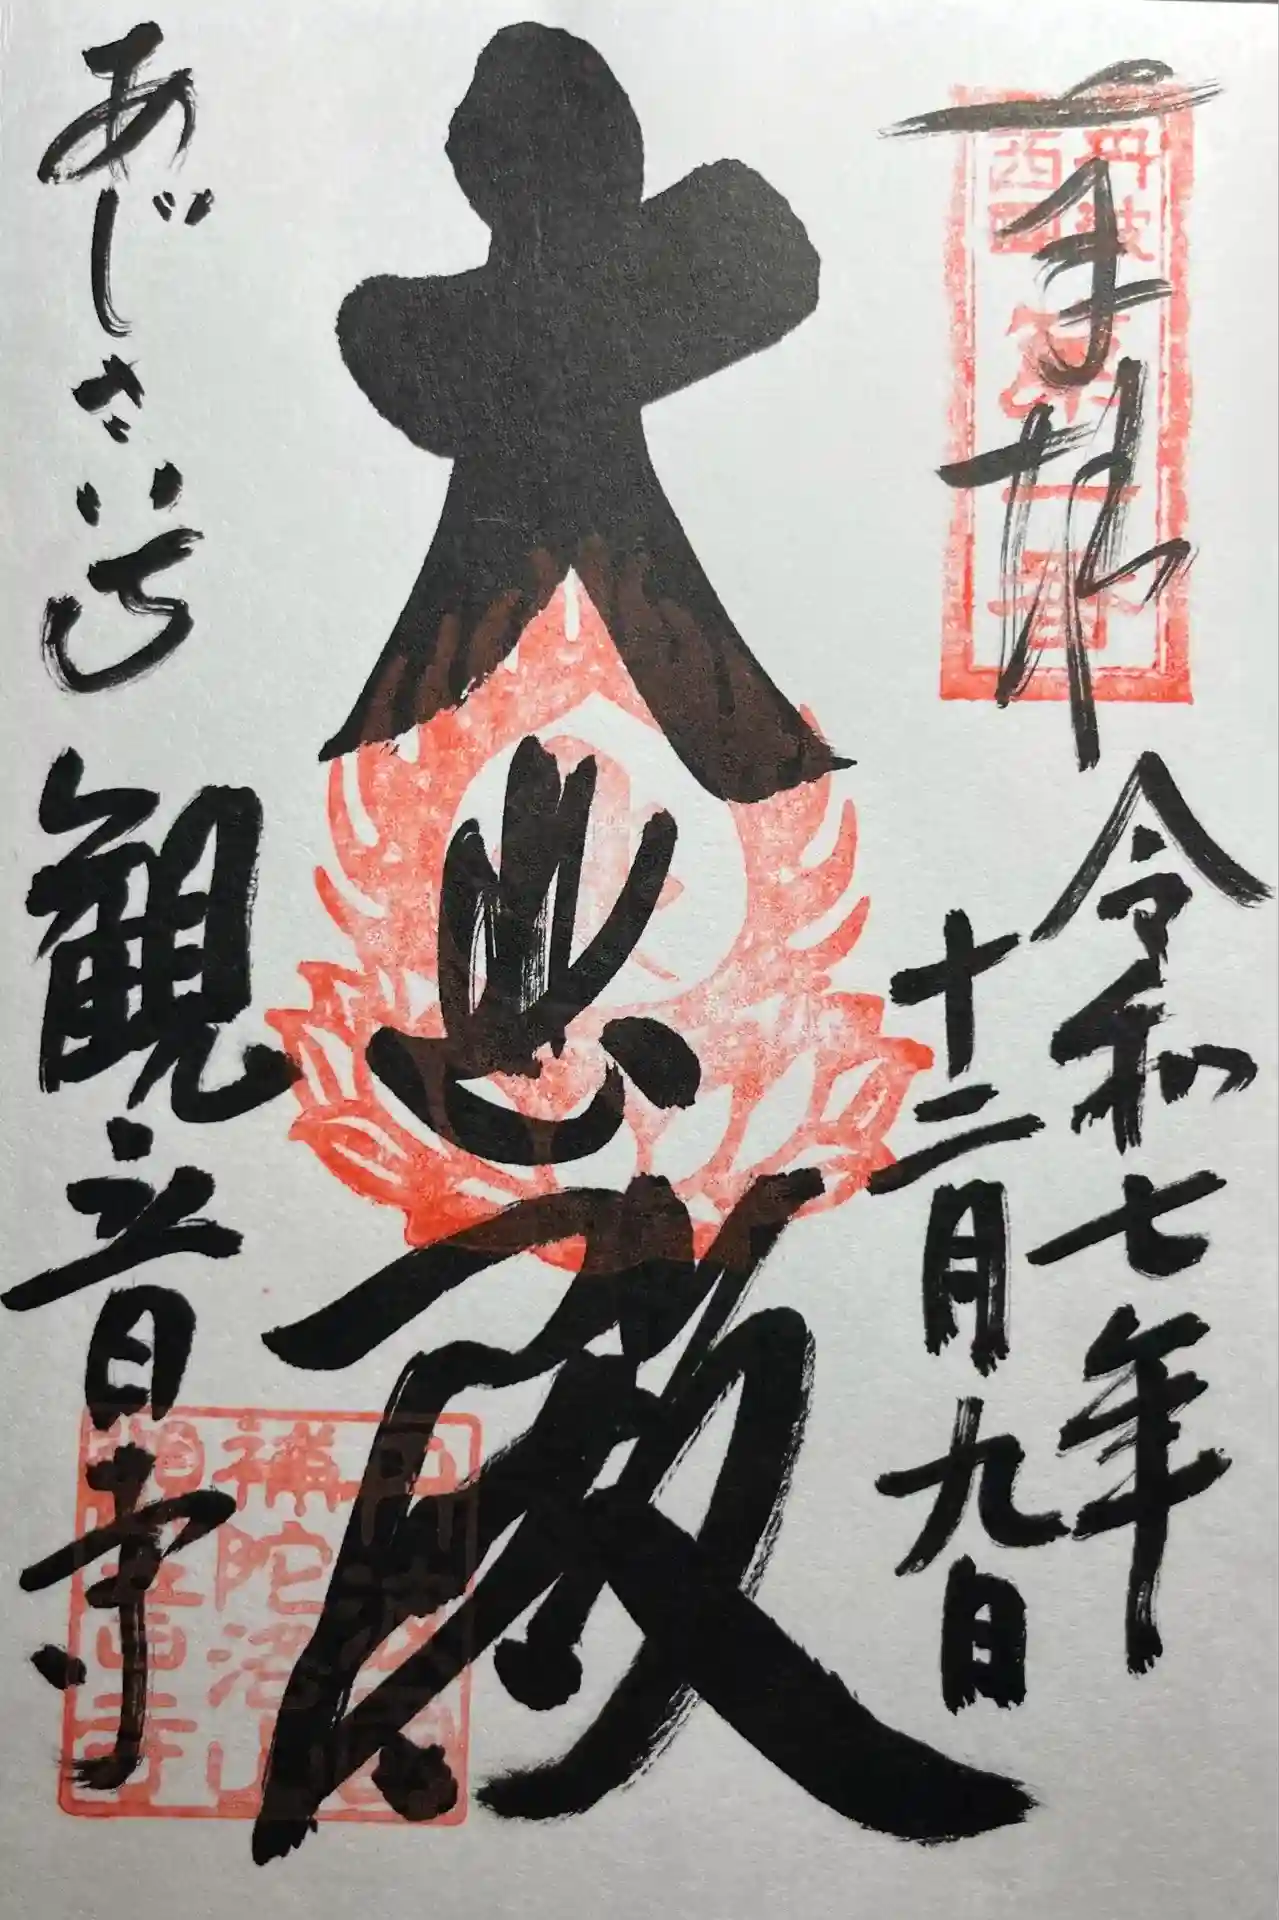 奉拝
丹波
西国
第一番
令和七年
十二月九日
大悲殿
あじさい
観音寺
補陀洛山
観音寺